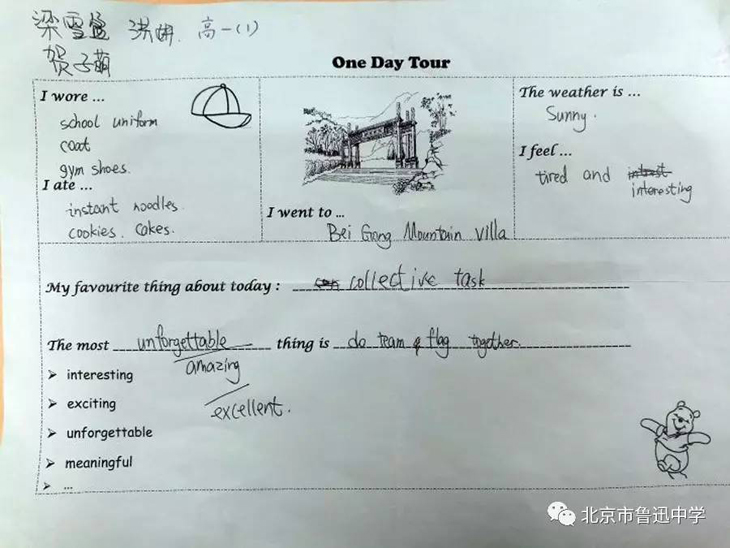 梁雪莹 洪妍. 高一(1)
贺子萌
One Day Tour
I wore ...
school uniform
coat
gym shoes.
I ate ...
instant noodles
cookies. cakes.
I went to ...
Bei Gong Mountain villa
The weather is ...
Sunny.
I feel ...
tired and
interesting
My favourite thing about today : collective task
The most unforgettable thing is do team & flag together.
amazing
excellent.
➢ interesting
➢ exciting
➢ unforgettable
➢ meaningful
➢ ...
北京市鲁迅中学